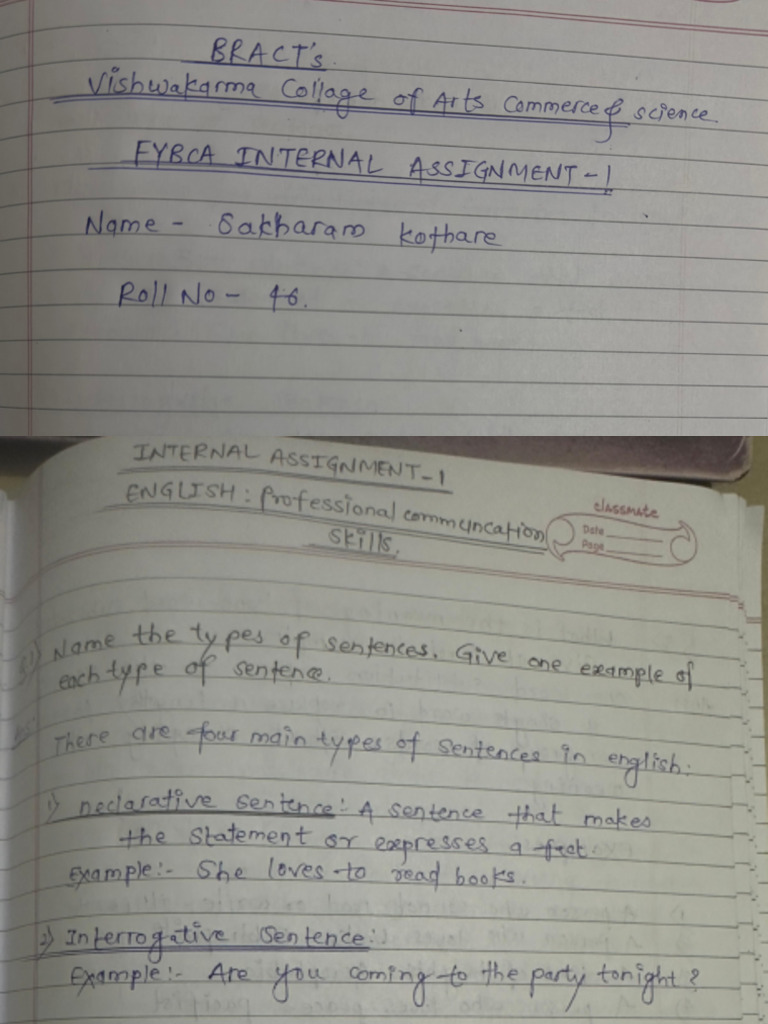 BRACT's
Vishwakarma Collage of Arts Commerce & science
FYBCA INTERNAL ASSIGNMENT-1
Name - Sakharam Kothare
Roll No - 46.
INTERNAL ASSIGNMENT-1
ENGLISH: Professional communcation
Skills.
classmate
Date
Page
Q1) Name the types of sentences. Give one example of
each type of sentence.
There are four main types of sentences in english:
1) Declarative sentence: A sentence that makes
the statement or expresses a fact.
Example:- She loves to read books.
2) Interrogative sentence:
Example:- Are you coming to the party tonight?